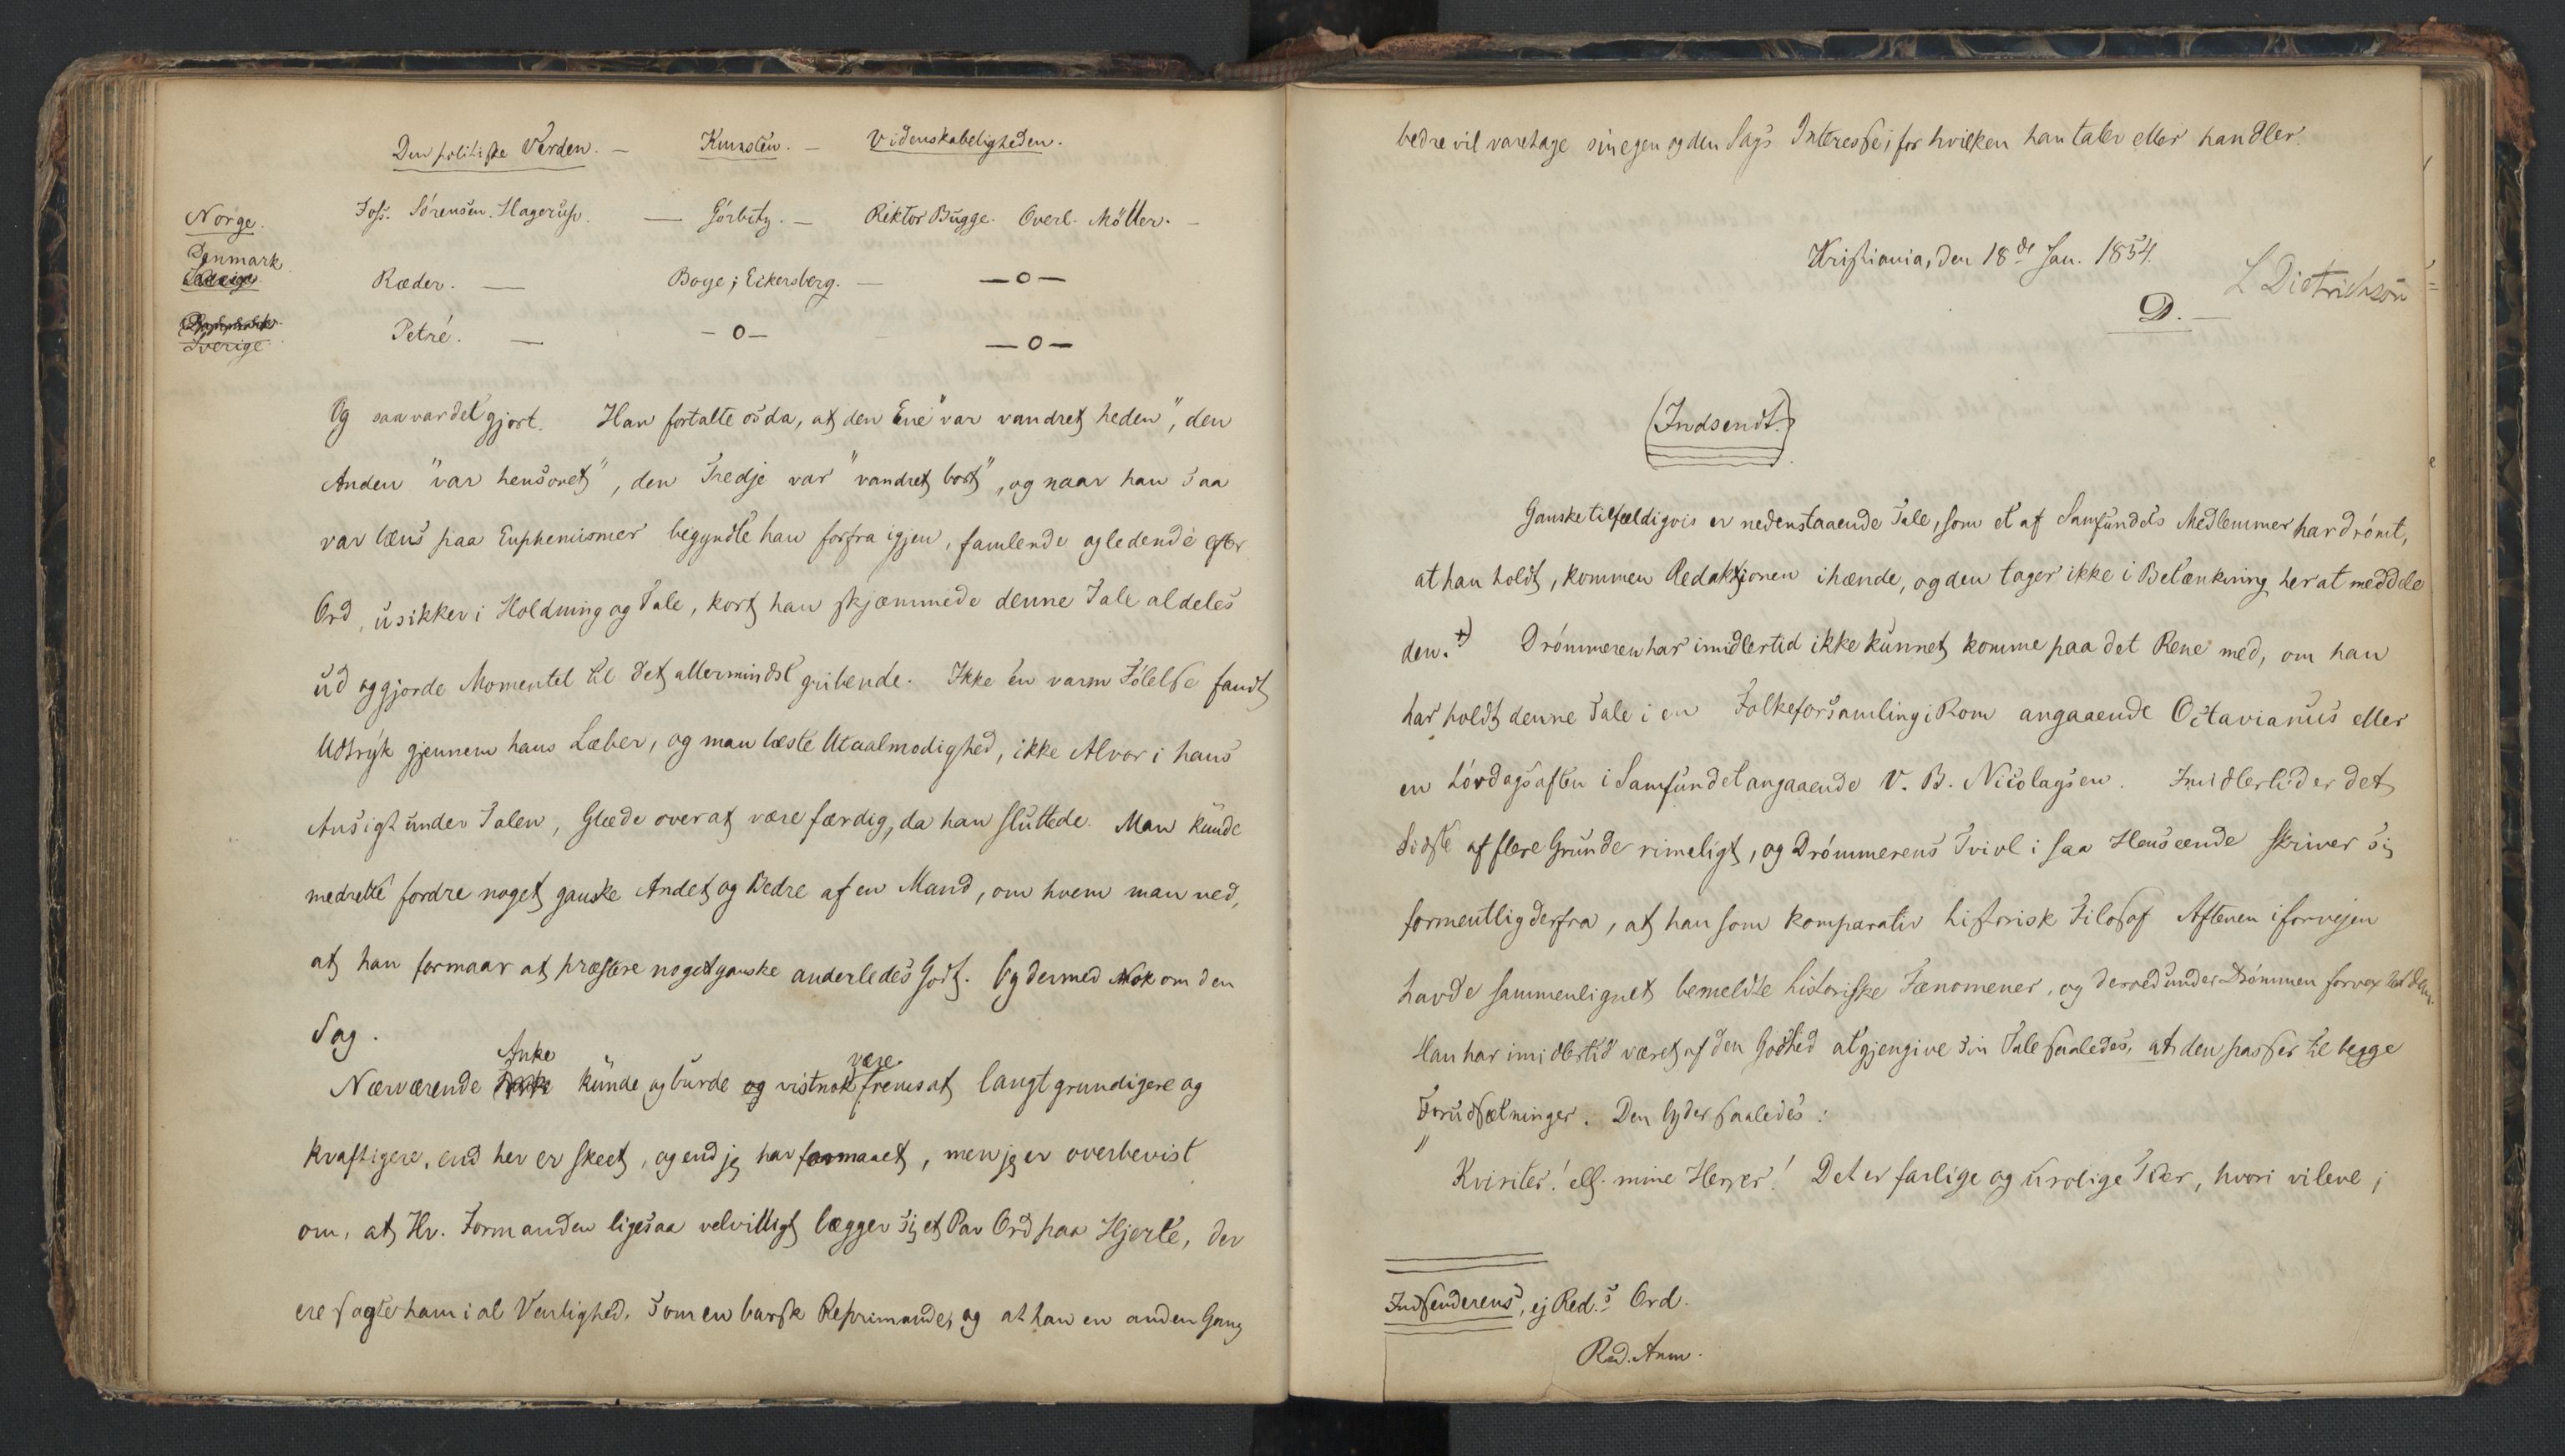 Den politiske Verden. — Kunsten. — Videnskabeligheden.
Norge. Joh. Sörensen. Hagerup. — Görbitz. — Rektor Bugge. Overl. Möller. —
Danmark
Sverige Ræder. — Boye; Eckersberg. — —o—
Danmark
Sverige Petré. — —o— —o—
Og saa var det gjort. Han fortalte os da, at den Ene "var vandret heden", den
Anden "var hensovet", den Tredje var "vandret bort", og naar han saa
var læns paa Euphemismer begyndte han forfra igjen, famlende og ledende efter
Ord, usikker i Holdning og Tale, kort han skjæmmede denne Tale aldeles
ud og gjorde Momentet til det allermindst gribende. Ikke en varm Fölelse fandt
Udtryk gjennem hans Læber, og man læste Utaalmodighed, ikke Alvor i hans
Ansigt under Talen, Glæde over at være færdig, da han sluttede. Man kunde
medrette fordre noget ganske Andet og Bedre af en Mand, om hvem man ved,
at han formaar at præstere noget ganske anderledes Godt. Og dermed Nok om den
Sag.
Anke være
Nærværende kunde og burde og vistnok fremsat langt grundigere og
kraftigere, end her er skeet, og end jeg har formaaet, men jeg er overbevist
om, at Hr. Formanden ligesaa velvilligt lægger sig et Par Ord paa Hjerte, der
ere sagte ham i al Venlighed, som en barsk Reprimande, og at han en anden Gang
bedre vil varetage sin egen og den Sags Interesse, for hvilken han taler eller handler.
Kristiania, den 18de Jan. 1854.
L Dietrichson
D. —
(Indsendt.)
Ganske tilfældigvis er nedenstaaende Tale, som et af Samfundets Medlemmer har drömt,
at han holdt, kommen Redaktjonen ihænde, og den tager ikke i Betænkning her at meddele
den. +) Drömmeren har imidlertid ikke kunnet komme paa det Rene med, om han
har holdt denne Tale i en Folkeforsamling i Rom angaaende Octavianus eller
en Lördagsaften i Samfundet angaaende V. B. Nicolaysen. Imidlertid er det
Sidste af flere Grunde rimeligt, og Drömmerens Tvivl i saa Henseende skriver sig
formentlig derfra, at han som komparativ historisk Filosof Aftenen iforvejen
havde sammenlignet bemeldte historiske Fænomener, og derved under Drömmen forvexlet dem.
Han har imidlertid været af den Godhed at gjengive sin Tale saaledes, at den passer til begge
Forudsætninger. Den lyder saaledes:
"Kviriter! ell. mine Herrer! Det er farlige og urolige Tider, hvori vi leve;
Indsenderens, ej Red.s Ord.
Red. Anm.